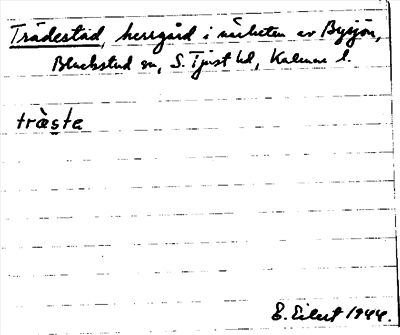 Trädestad, herrgård i närheten av Bysjön,
Blackstad sn, S. Tjust hd, Kalmar l.
trä̀sta
E. Eilert 1944.